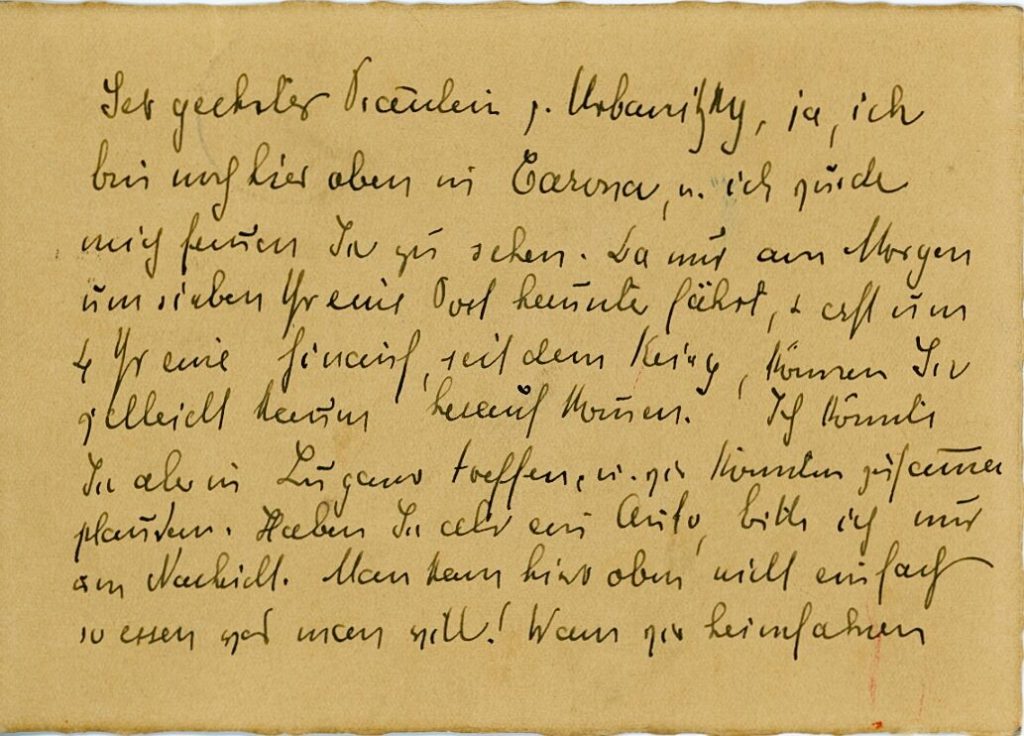 Sehr geehrtes Fräulein v. Urbanitzky, ja, ich
bin noch hier oben in Carona, u. ich würde
mich freuen Sie zu sehen. Da nur am Morgen
um sieben Uhr eine Post herunter fährt, & erst um
4 Uhr eine hinauf, seit dem Krieg, können Sie
vielleicht kaum herauf kommen. Ich könnte
Sie aber in Lugano treffen, u. wir könnten zusammen
plaudern. Haben Sie aber ein Auto, bitte ich nur
um Nachricht. Man kann hier oben nicht einfach
so essen was man will! Wann wir heimfahren